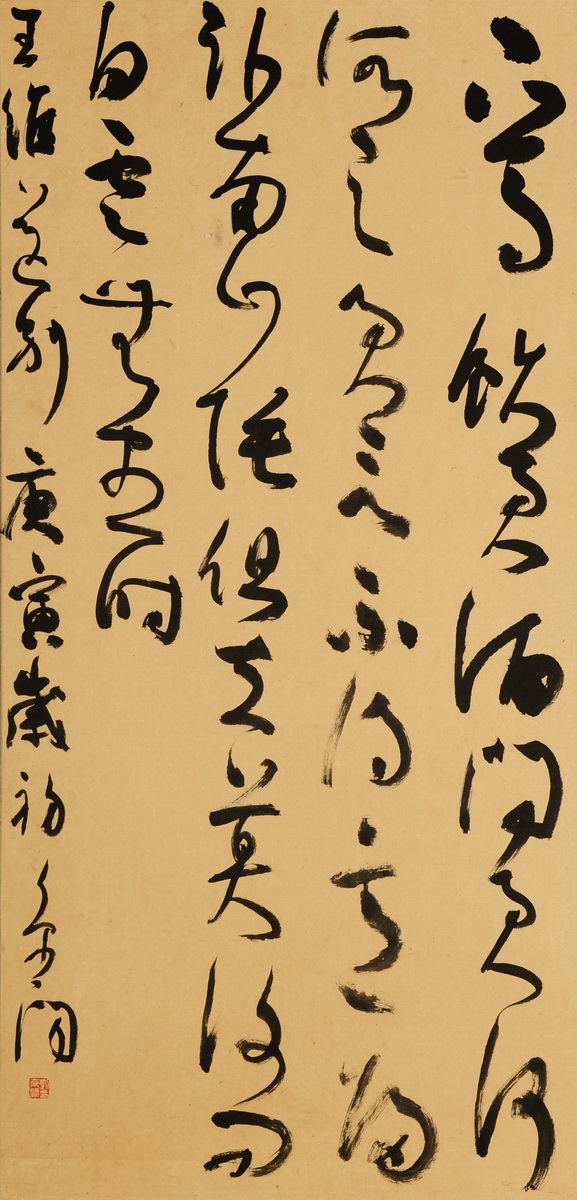 下馬飲君酒問君何
所之君言不得意歸
臥南山陲但去莫復問
白雲無盡時
王維送別 庚寅歲初